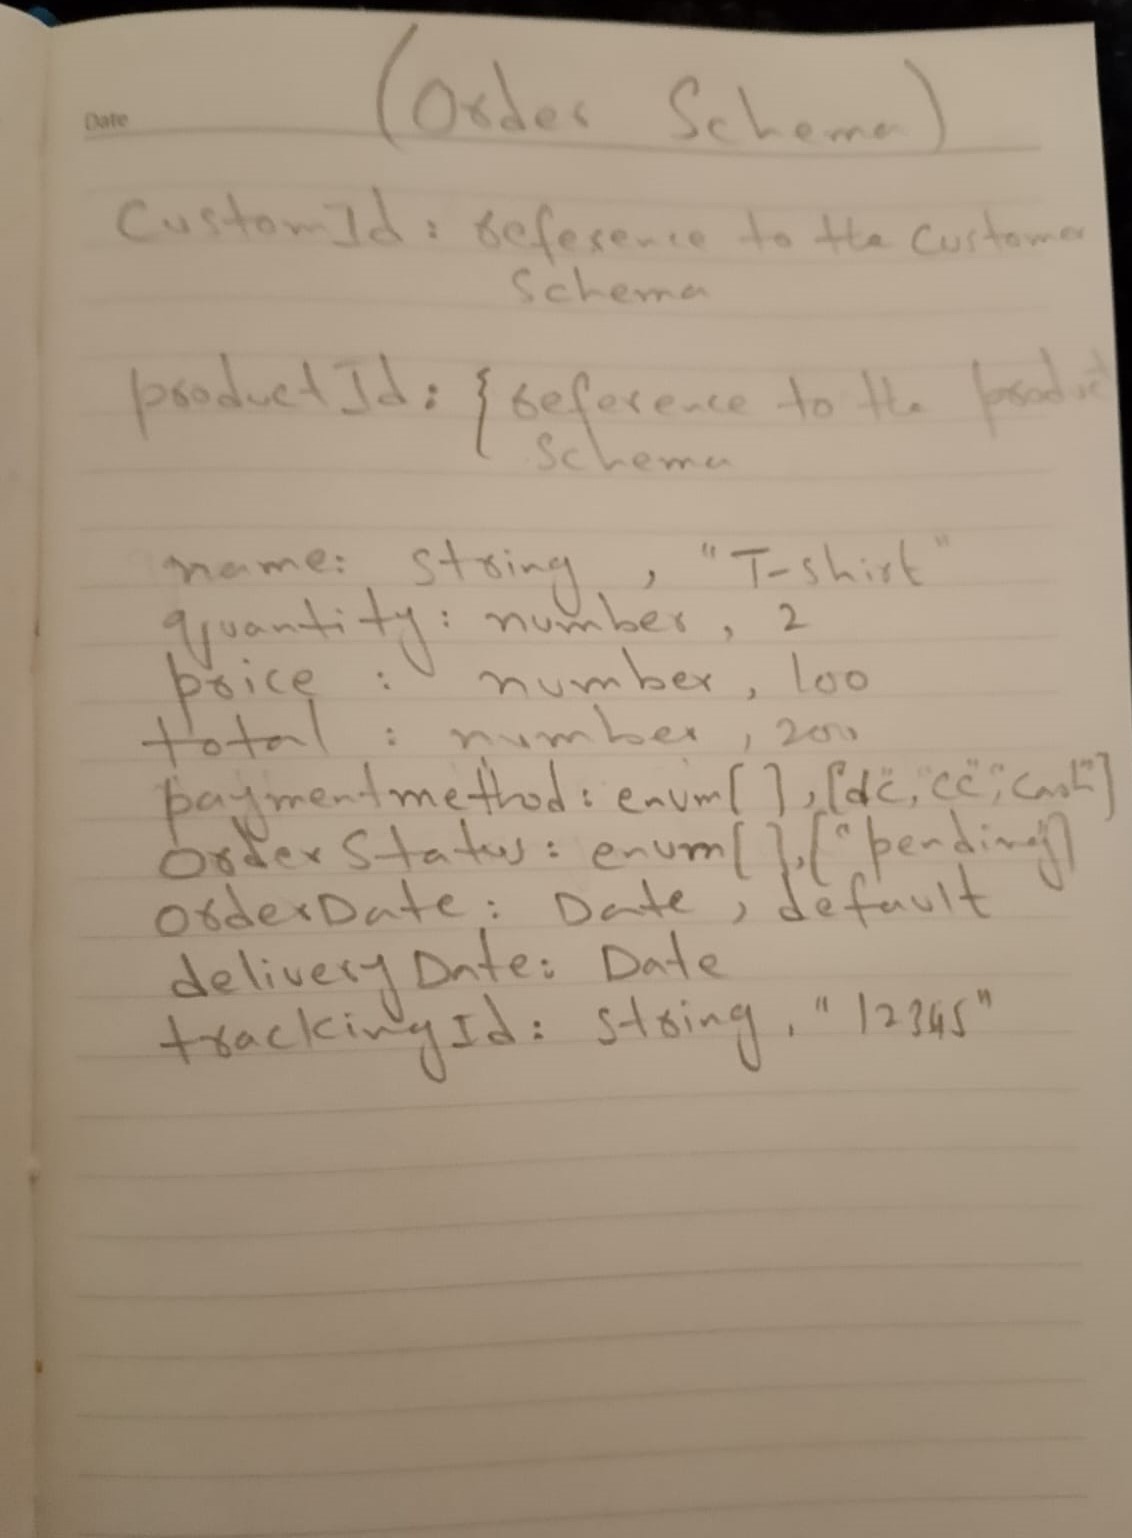 Date
(Order Schema)
CustomId: reference to the Customer
Schema
productId: { reference to the product
Schema
name: string, "T-shirt"
quantity: number, 2
price : number, 100
total : number, 200
paymentmethod: enum[ ], ["dc", "cc", "cash"]
orderStatus: enum[ ], ["pending"]
orderDate: Date, default
deliveryDate: Date
trackingId: string, "12345"